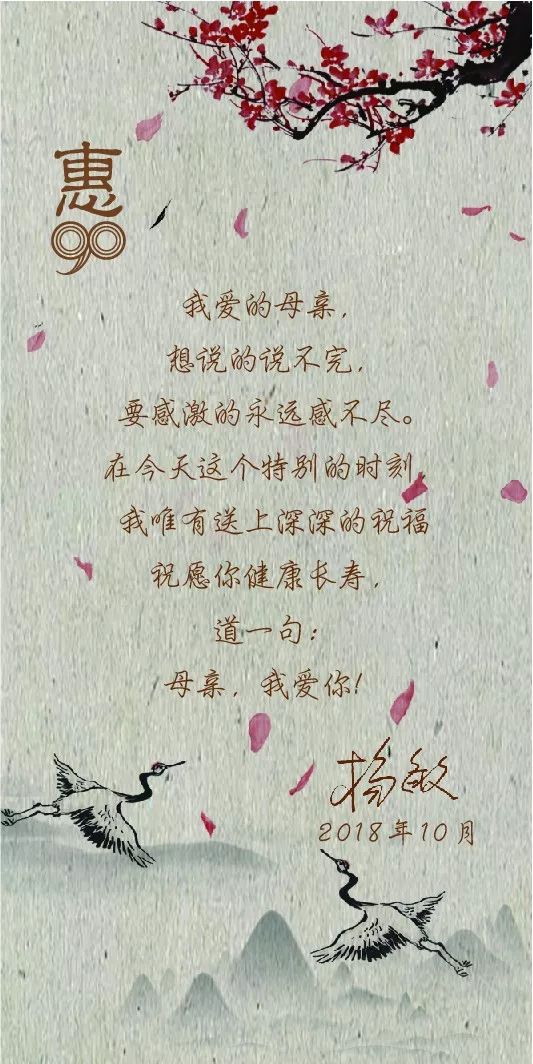 惠
90
我爱的母亲,
想说的说不完,
要感激的永远感不尽。
在今天这个特别的时刻,
我唯有送上深深的祝福
祝愿你健康长寿,
道一句:
母亲,我爱你!
杨敏
2018年10月